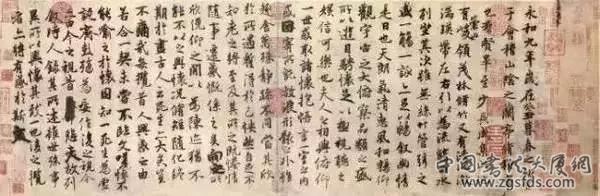 永和九年歲在癸丑暮春之初會
于會稽山陰之蘭亭脩稧事
也群賢畢至少長咸集此地
有崇山峻領茂林脩竹又有清流激
湍暎帶左右引以為流觴曲水
列坐其次雖無絲竹管弦之
盛一觴一詠亦足以暢敘幽情
是日也天朗氣清惠風和暢仰
觀宇宙之大俯察品類之盛
所以遊目騁懷足以極視聽之
娛信可樂也夫人之相與俯仰
一世或取諸懷抱悟言一室之內
或因寄所託放浪形骸之外雖
趣舍萬殊靜躁不同當其欣
於所遇暫得於己怏然自足不
知老之將至及其所之既惓情
隨事遷感慨係之矣向之所
欣俛仰之間以為陳迹猶不
能不以之興懷況脩短隨化終
期於盡古人云死生亦大矣豈
不痛哉每攬昔人興感之由
若合一契未嘗不臨文嗟悼不
能喻之於懷固知一死生為虛
誕齊彭殤為妄作後之視今
亦由今之視昔悲夫故列
敘時人錄其所述雖世殊事
異所以興懷其致一也後之攬
者亦將有感於斯文
www.zgsfds.com